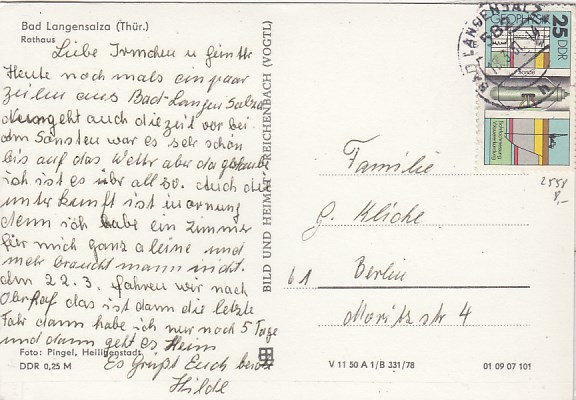 Bad Langensalza (Thür.)
Rathaus
Liebe Irmchen u Geintz
Heute noch mals ein paar
zeilen aus Bad-Langensalza
geht auch die zeit vor bei
dm Sonsten war es sehr schön
bis auf das Wettr aber da glaube
ich ist es über all so. Auch die
unter kunft ist in ornung
denn ich habe ein Zimmer
für mich ganz aleine und
mehr braucht mann nicht.
dm 22.3. fahren wir nach
Oberhof das ist dann die letzte
Fahr dann habe ich nur noch 5 Tage
und dann geht es Heim
Es Grüßt Euch
Hilde
Foto: Pingel, Heiligenstadt
DDR 0,25 M
BILD UND HEIMAT REICHENBACH (VOGTL)
BAD LANGENSALZA
582
GEOPHYSIK
25 DDR
Familie
G. Kliche
61 Berlin
Moritzstr 4
V 11 50 A 1/B 331/78
01 09 07 101